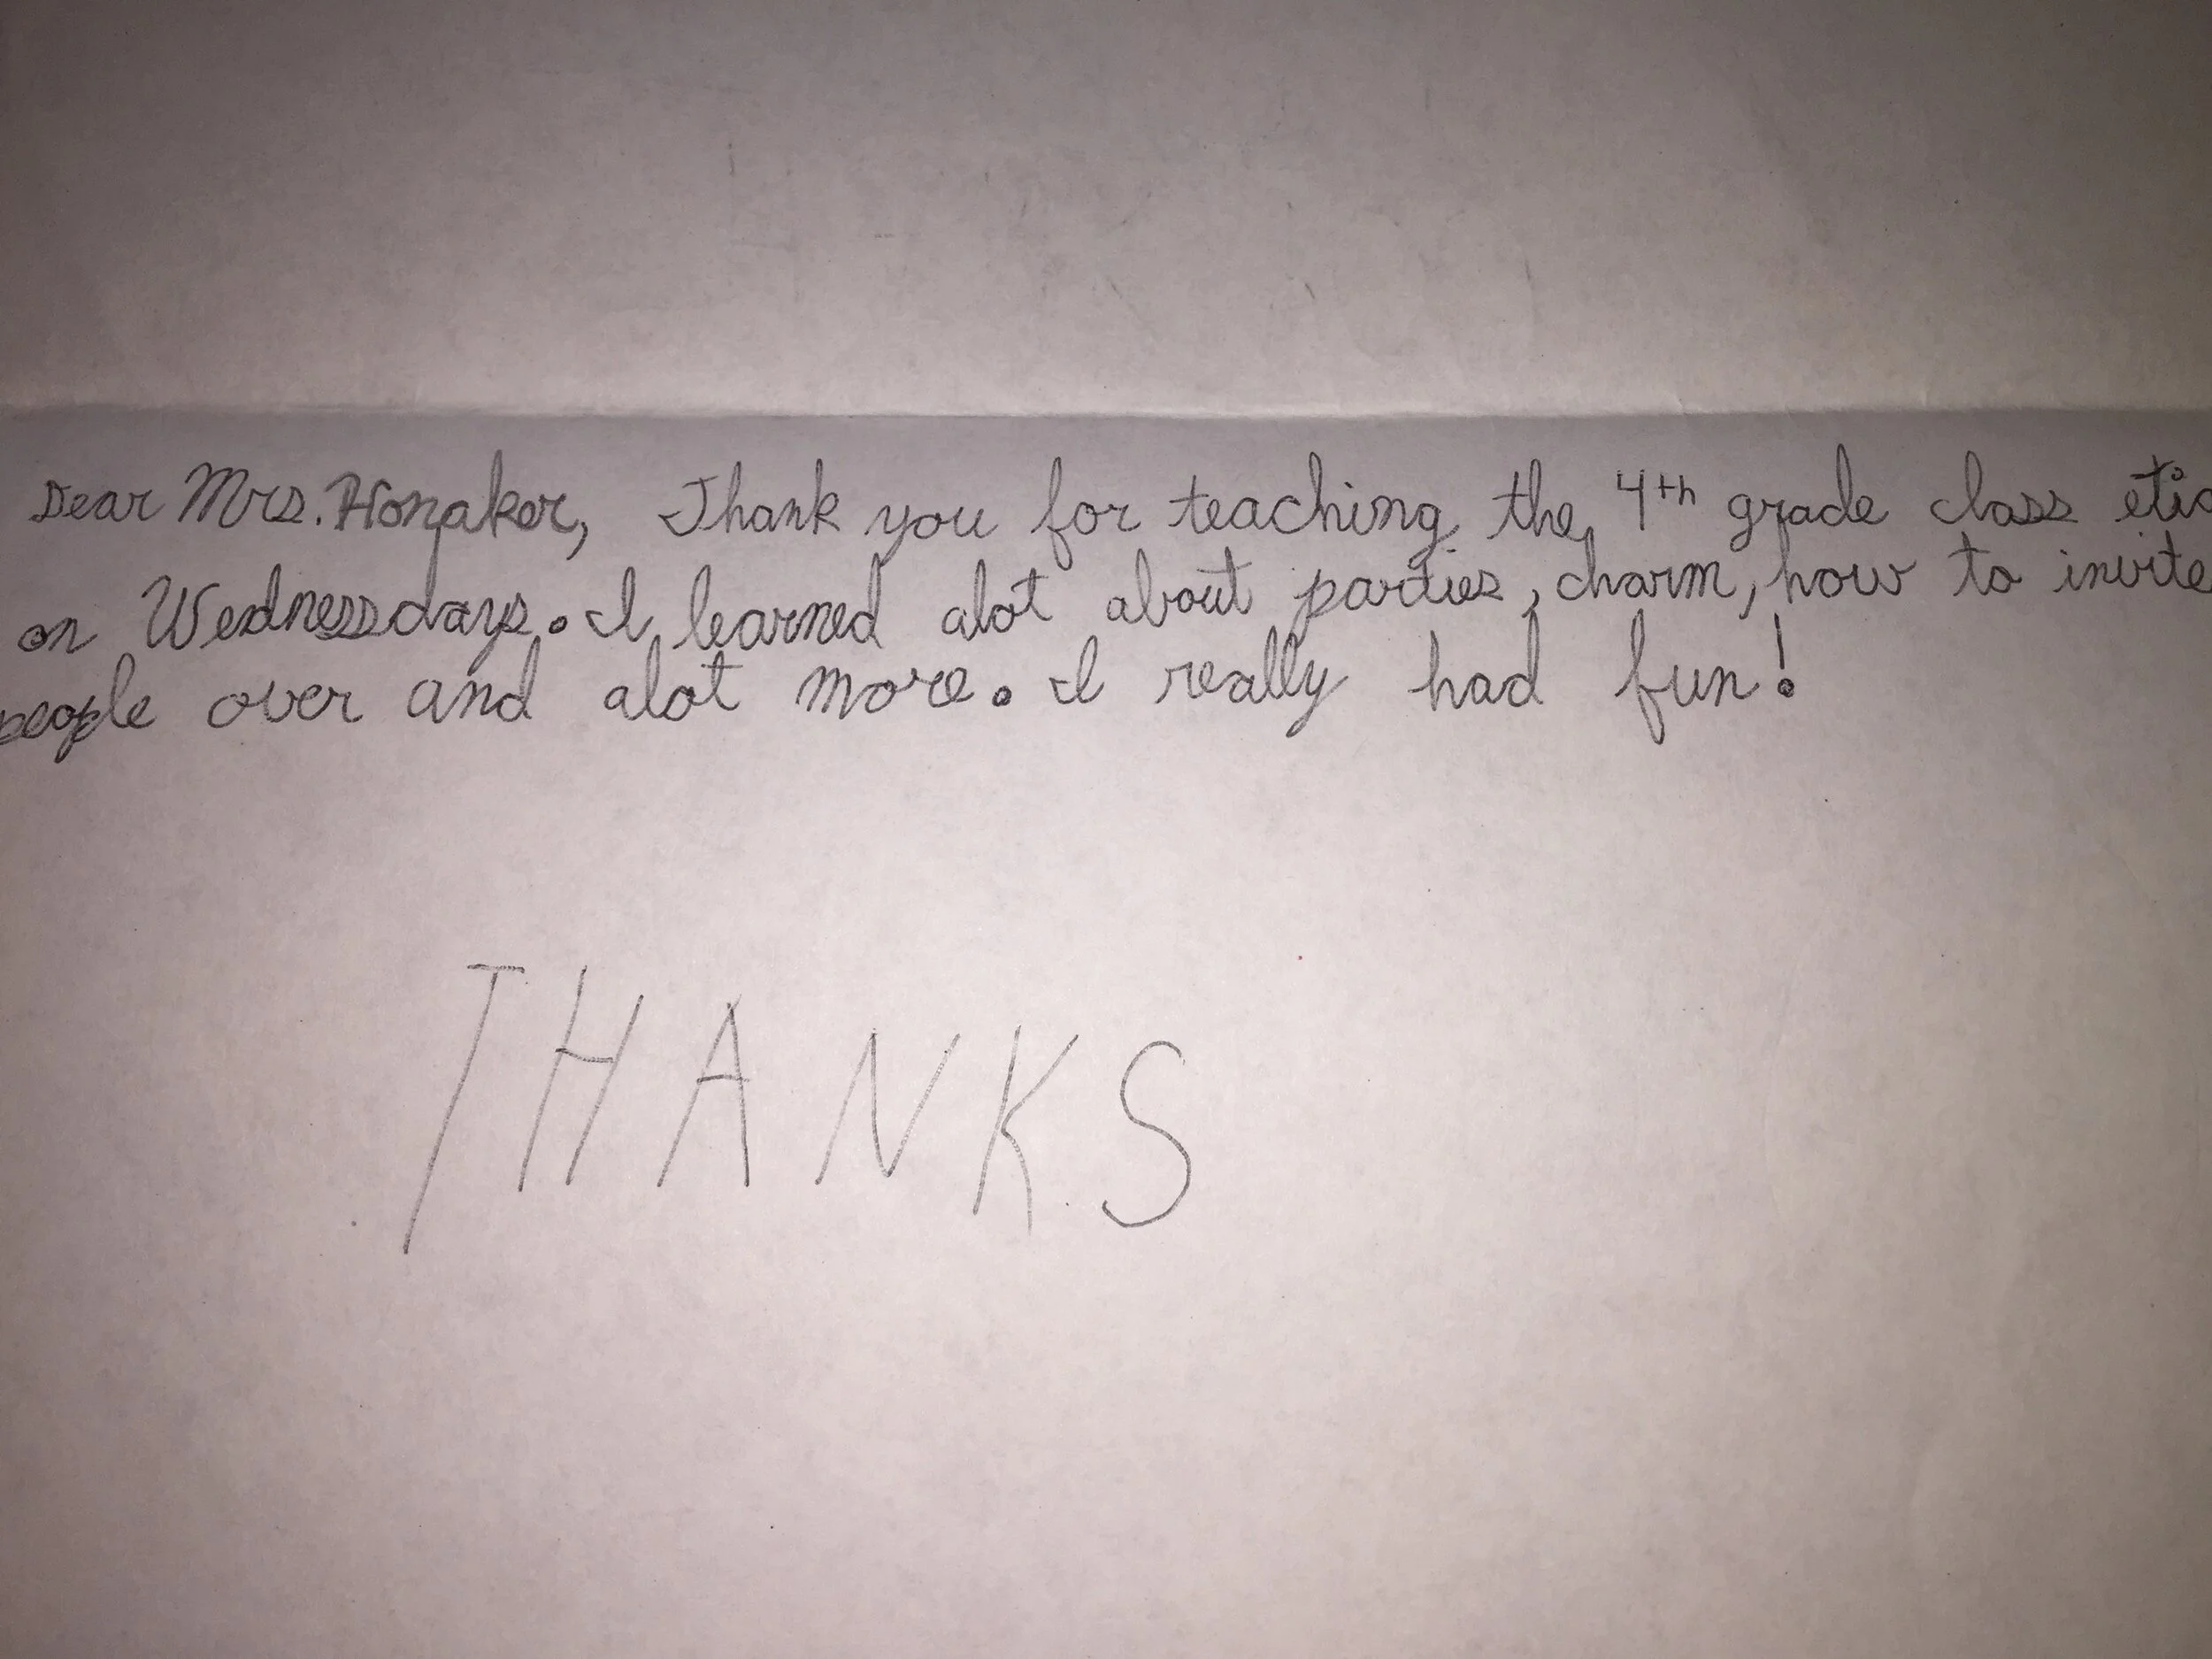 Dear Mrs. Honaker, Thank you for teaching the 4th grade class etic
on Wednessdays. I learned alot about parties, charm, how to invite
people over and alot more. I really had fun!
THANKS